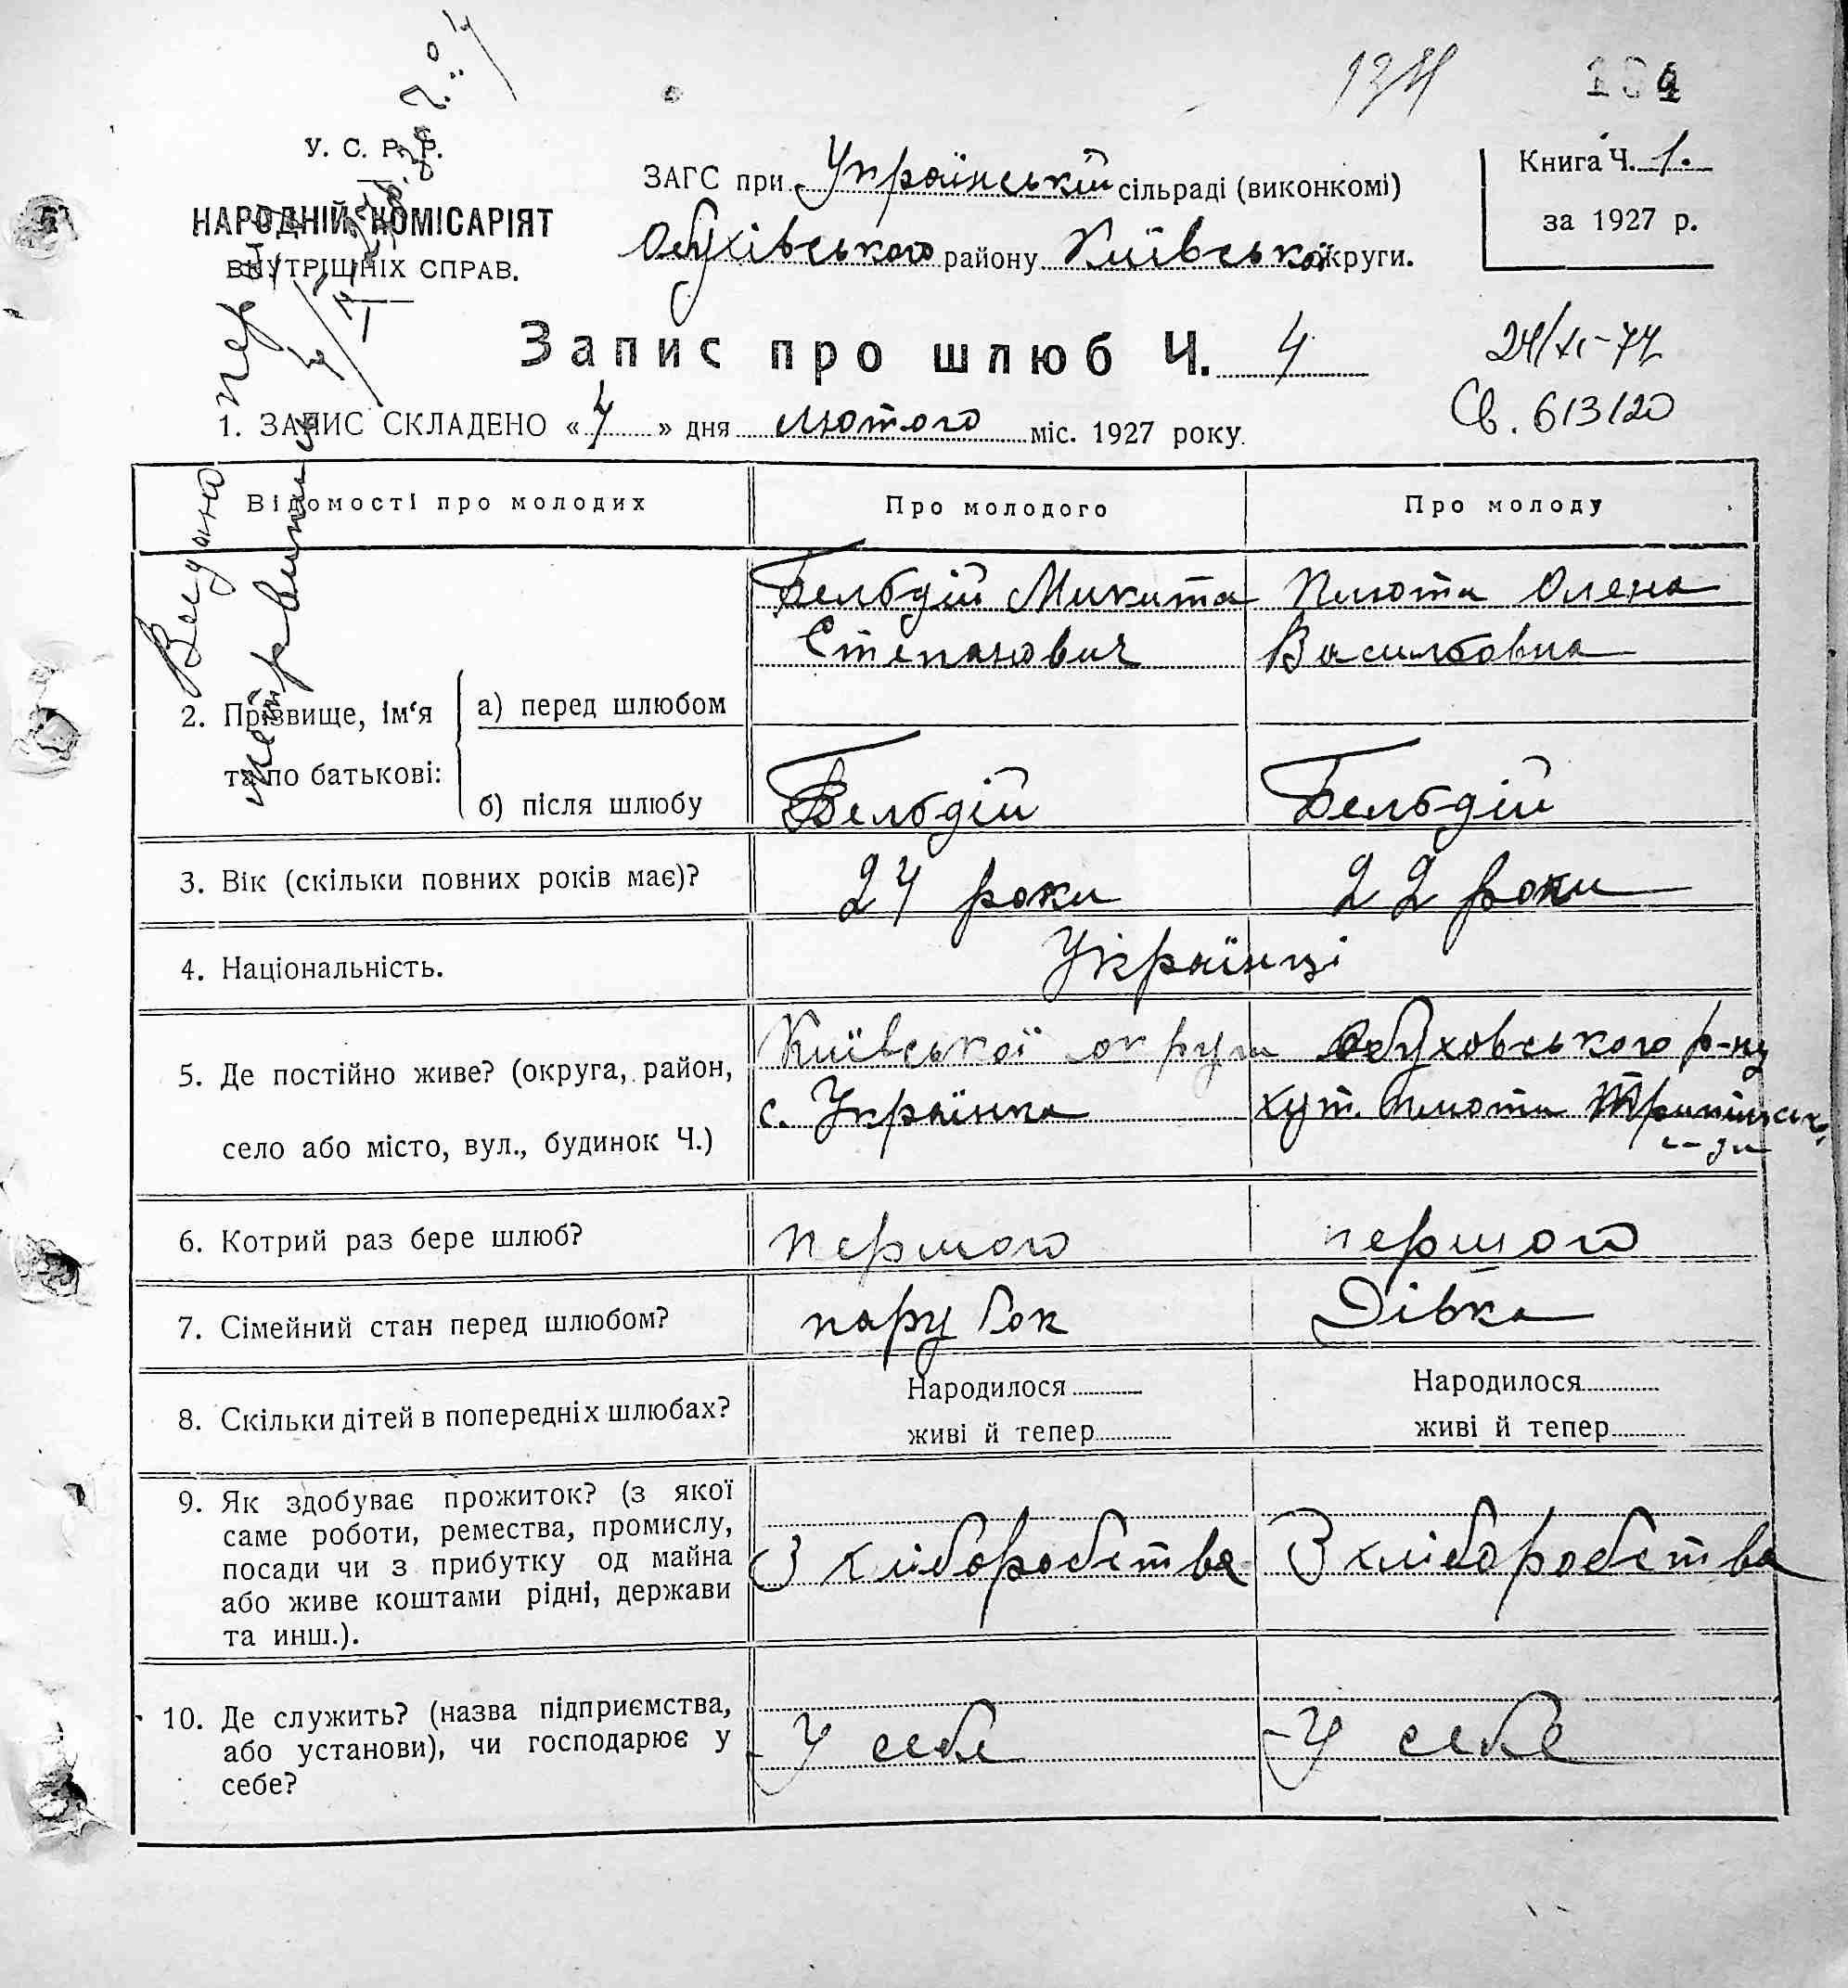 134
У. С. Р. Р.
НАРОДНІЙ КОМІСАРІЯТ
ВНУТРІШНІХ СПРАВ.
ЗАГС при Українській сільраді (виконкомі)
Обухівського району Київської округи.
Книга Ч. 1.
за 1927 р.
Запис про шлюб Ч. 4
24/XI-77
Св. 613120
1. ЗАПИС СКЛАДЕНО « 4 » дня лютого міс. 1927 року.
Видано
Відомості про молодих
Про молодого
Про молоду
2. Прізвище, ім‘я
та по батькові:
а) перед шлюбом
Бельдій Микита
Степанович
Плюта Олена
Васильовна
б) після шлюбу
Бельдій
Бельдій
3. Вік (скільки повних років має)?
24 роки
22 роки
4. Національність.
Українці
5. Де постійно живе? (округа, район,
село або місто, вул., будинок Ч.)
Київської округи Обуховського р-ну
с. Українка
хут. Плюти Трипільськ.
с-ди
6. Котрий раз бере шлюб?
першого
першого
7. Сімейний стан перед шлюбом?
парубок
Дівка
8. Скільки дітей в попередніх шлюбах?
Народилося
живі й тепер
Народилося
живі й тепер
9. Як здобуває прожиток? (з якої
саме роботи, ремества, промислу,
посади чи з прибутку од майна
або живе коштами рідні, держави
та инш.).
З хліборобства
З хліборобства
10. Де служить? (назва підприємства,
або установи), чи господарює у
себе?
У себе
У себе